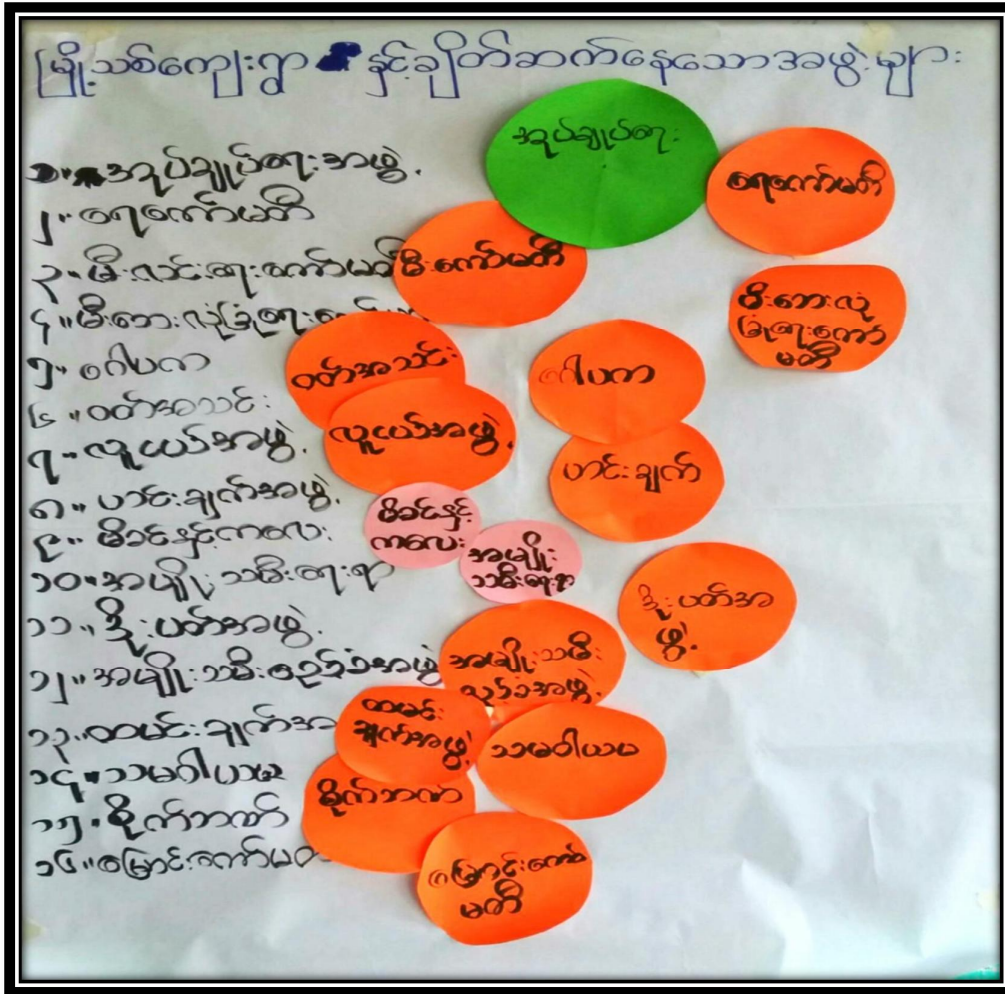 မြို့သစ်ကျေးရွာ နှင့်ချိတ်ဆက်နေသောအဖွဲ့များ
၁။ အုပ်ချုပ်ရေးအဖွဲ့
၂။ ရေကော်မတီ
၃။ မီးလင်းရေးကော်မတီ
၄။ မီးဘေးလုံခြုံရေး
၅။ ဂေါပက
၆။ ဝတ်အသင်း
၇။ လူငယ်အဖွဲ့
၈။ ဟင်းချက်အဖွဲ့
၉။ မိခင်နှင့်ကလေး
၁၀။ အမျိုးသမီးရေးရာ
၁၁။ ဒိုးပတ်အဖွဲ့
၁၂။ အမျိုးသမီးဧည့်ခံအဖွဲ့
၁၃။ ထမင်းချက်အ
၁၄။ သမဝါယမ
၁၅။ စိုက်ဘဏ်
၁၆။ မြောင်းကော်မတီ
အုပ်ချုပ်ရေး
ရေကော်မတီ
မီးကော်မတီ
မီးဘေးလုံ
ခြုံရေးကော်
မတီ
ဝတ်အသင်း
ဂေါပက
လူငယ်အဖွဲ့
ဟင်းချက်
မိခင်နှင့်
ကလေး
အမျိုး
သမီးရေးရာ
ဒိုးပတ်အ
ဖွဲ့
အမျိုးသမီး
လုပ်ငန်းအဖွဲ့
ထမင်း
ချက်အဖွဲ့
သမဝါယမ
စိုက်ဘဏ်
မြောင်းကော်
မတီ